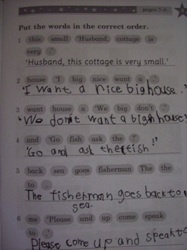 pages 7-8
Put the words in the correct order.
1 this small 'Husband, cottage is
very .'
'Husband, this cottage is very small.'
2 house 'I big nice want a .'
'I want a nice big house.'
3 want house a 'We big don't .'
'We don't want a big house'
4 and 'Go fish ask the .'
'Go and ask the fish!'
5 back sea goes fisherman The the
to .
The fisherman goes back to
sea.
6 me 'Please and up come speak
to .'
Please come up and speak to